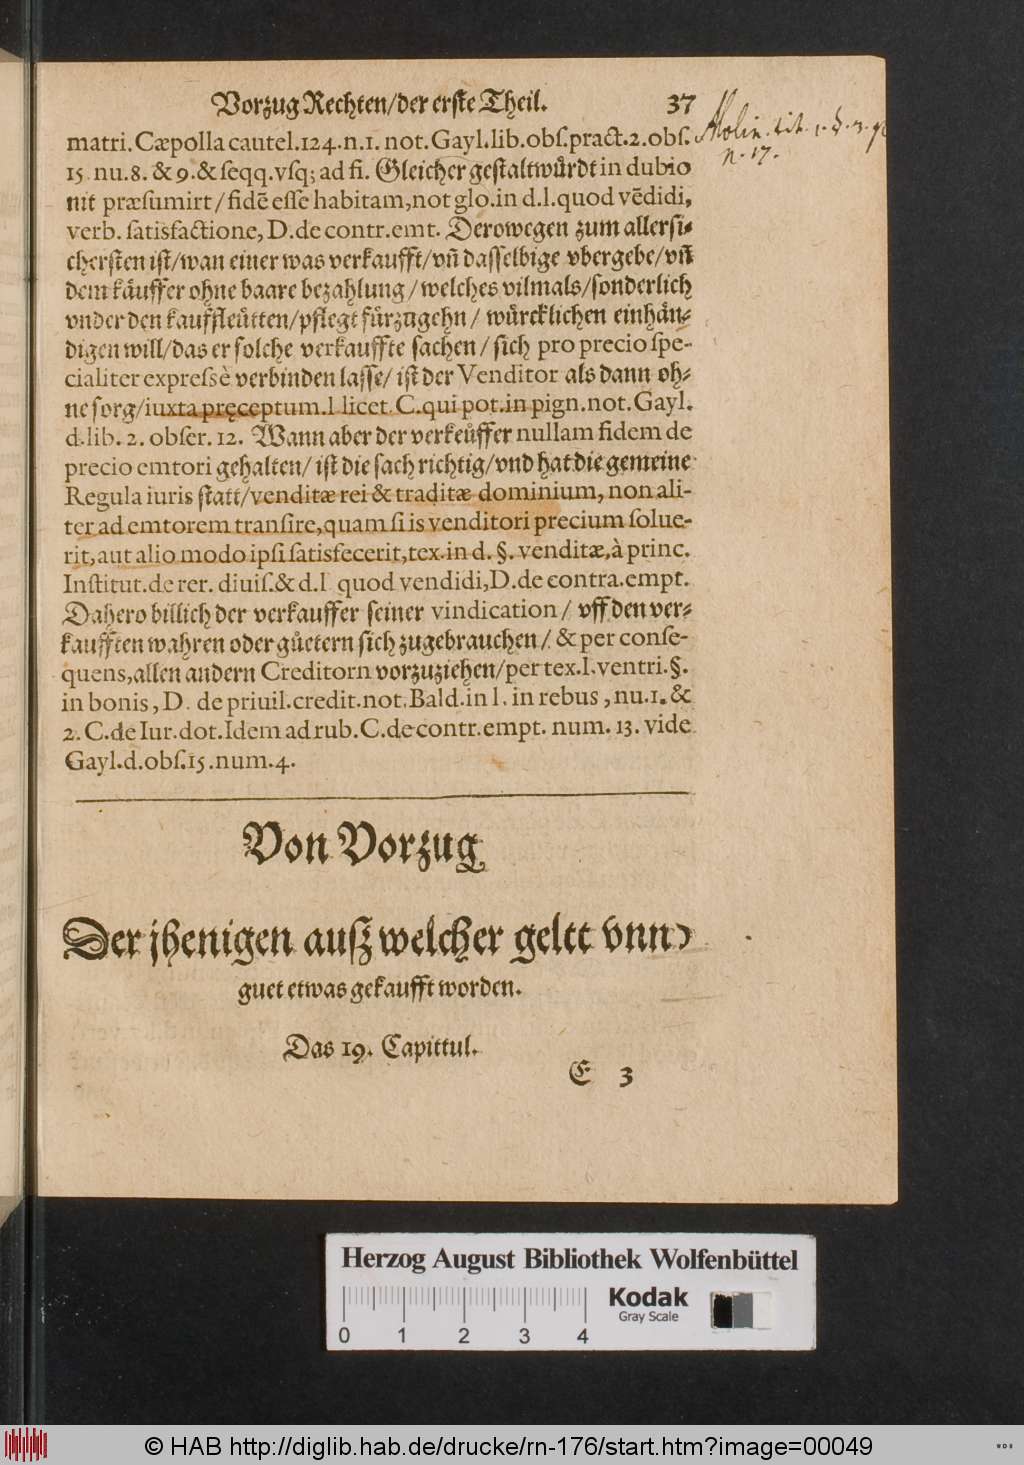 Vorzug Rechten/der erste Theil. 37
matri. Cæpolla cautel.124.n.1. not. Gayl.lib.obſ.pract.2.obſ.
15 nu.8. & 9.& ſeqq.vſq; ad fi. Gleicher geſtalt wuͤrdt in dubio
nit præſumirt/fidē eſſe habitam,not glo.in d.l.quod vēdidi,
verb. ſatisfactione, D.de contr.emt. Derowegen zum allerſi-
cherſten iſt/wan einer was verkaufft/vn̄ daſſelbige vbergebe/vn̄
dem kaͤuffer ohne baare bezahlung/welches vilmals/ſonderlich
vnder den kauffleuͤtten/pflegt fuͤrzugehn/ wuͤrcklichen einhaͤn-
digen will/das er ſolche verkauffte ſachen/ſich pro precio ſpe-
cialiter expreſsè verbinden laſſe/ iſt der Venditor als dann oh-
ne ſorg/iuxta pręceptum.l licet. C.qui pot.in pign.not. Gayl.
d.lib. 2. obſer. 12. Wann aber der verkeuͤffer nullam fidem de
precio emtori gehalten/ iſt die ſach richtig/vnd hat die gemeine
Regula iuris ſtatt/venditæ rei & traditæ dominium, non ali-
ter ad emtorem tranſire,quam ſi is venditori precium ſolue-
rit,aut alio modo ipſi ſatisfecerit,tex.in d. §. venditæ,à princ.
Inſtitut.de rer. diuiſ.& d.l quod vendidi,D.de contra.empt.
Dahero billich der verkauffer ſeiner vindication/ vff den ver-
kaufften wahren oder guͤetern ſich zugebrauchen/ & per conſe-
quens,allen andern Creditorn vorzuziehen/per tex.l.ventri.§.
in bonis, D. de priuil.credit.not.Bald.in l. in rebus, nu.1. &
2. C.de Iur.dot.Idem ad rub.C.de contr.empt. num. 13. vide
Gayl.d.obſ.15.num.4.
Molin. tit. 1. d. 3.
n. 17.
Von Vorzug
Der jhenigen auß welcher geltt vnnd
guet etwas gekaufft worden.
Das 19. Capittul.
E 3
Herzog August Bibliothek Wolfenbüttel
Kodak
Gray Scale
0 1 2 3 4
© HAB http://diglib.hab.de/drucke/rn-176/start.htm?image=00049